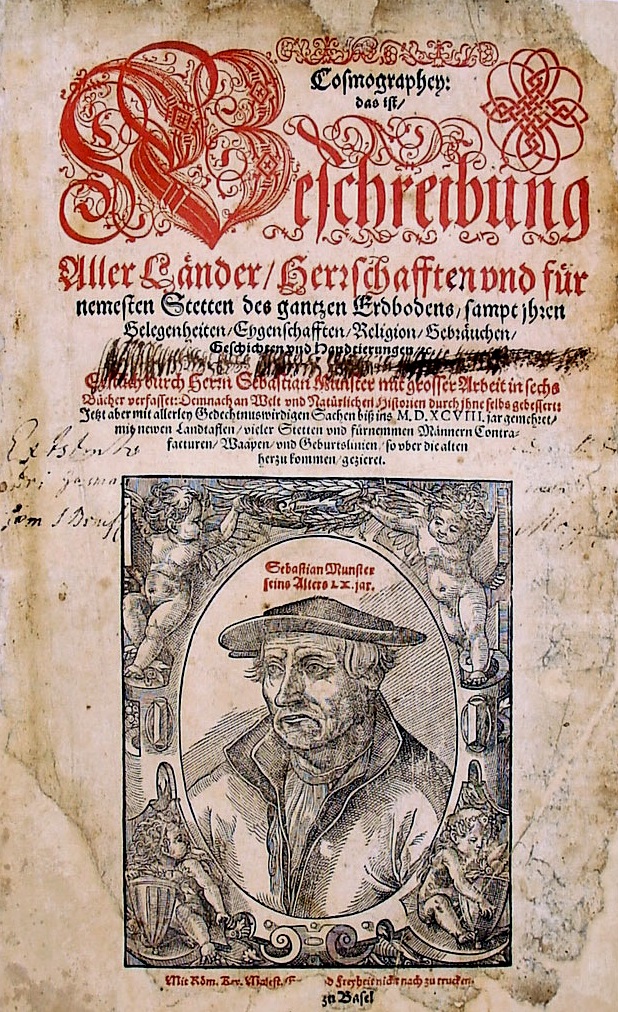 Cosmographey:
das ist/
Beschreibung
Aller Länder/ Herrschafften vnd für
nemesten Stetten des gantzen Erdbodens/ sampt jhren
Gelegenheiten/ Eygenschafften/ Religion/ Gebräuchen/
Geschichten vnd Handtierungen/
Erstlich durch Herrn Sebastian Munster mit grosser Arbeit in sechs
Bücher verfasset: Demnach an Welt vnd Natürlichen Historien durch jhne selbs gebessert:
Jetzt aber mit allerley Gedechtnuswirdigen Sachen biß ins M. D. XCVIII. jar gemehret/
mit newen Landtaflen/ vieler Stetten vnd fürnemmen Männern Contra-
facturen/ Waapen/ vnd Geburtslinien/ so vber die alten
herzu kommen/ gezieret.
Sebastian Munster
seins Alters LX. jar.
Mit Röm. Key. Majest. Freyheit nicht nach zu trucken.
zu Basel